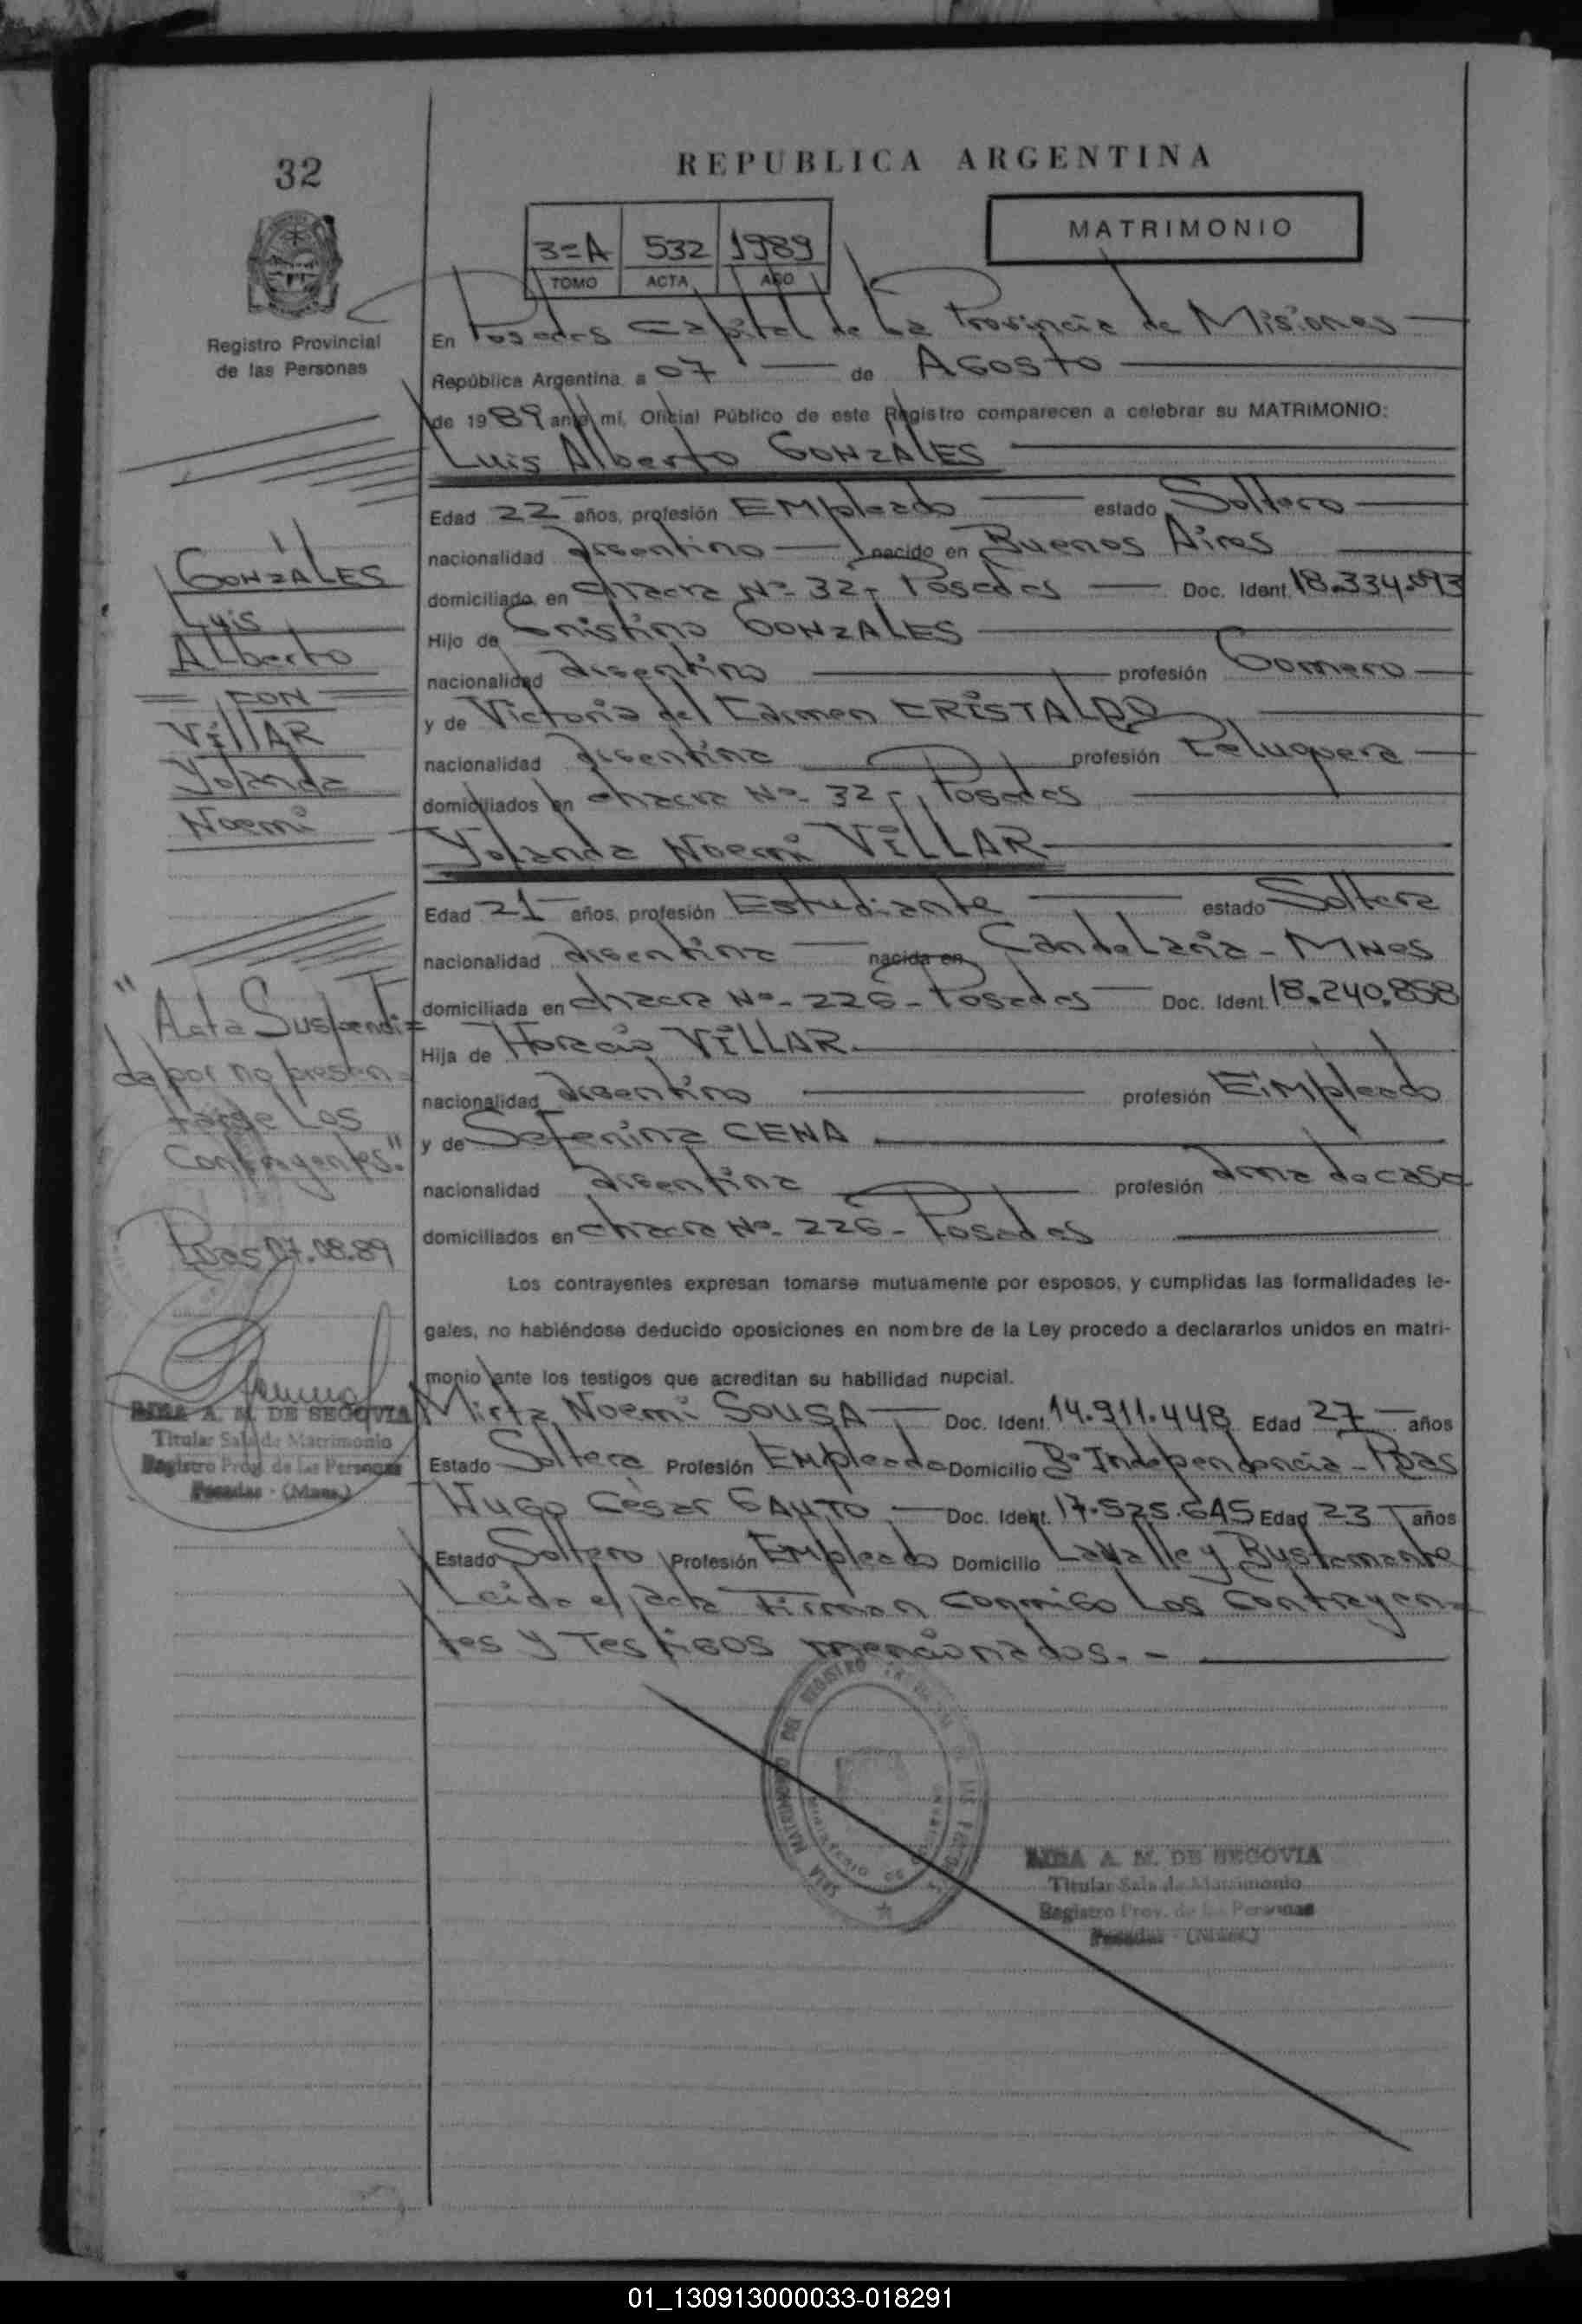 32
REPUBLICA ARGENTINA
MATRIMONIO
3=A 532 1989
TOMO ACTA AÑO
Registro Provincial
de las Personas
En Posadas Capital de La Provincia de Misiones
República Argentina a 07 de AGOSTO
de 1989 ante mí, Oficial Público de este Registro comparecen a celebrar su MATRIMONIO:
Luis Alberto GONZALES
Edad 22 años, profesión EMpleado estado Soltero
nacionalidad Argentino nacido en Buenos Aires
domiciliado en chacra Nº- 32- Posadas Doc. Ident. 18.334.093
Hijo de Cristino GONZALES
nacionalidad Argentino profesión Gomero
y de Victoria del Carmen CRISTALDO
nacionalidad Argentina profesión Peluquera
domiciliados en chacra Nº- 32-, Posadas
Yolanda Noemi VILLAR
Edad 21 años, profesión Estudiante estado Soltera
nacionalidad Argentina nacida en Candelaria - MNes
domiciliada en chacra Nº- 226- Posadas Doc. Ident. 18.240.858
Hija de Horacio VILLAR
nacionalidad Argentino profesión EMpleado
y de Seferina CENA
nacionalidad Argentina profesión Ama de casa
domiciliados en chacra Nº- 226- Posadas
Los contrayentes expresan tomarse mutuamente por esposos, y cumplidas las formalidades le-
gales, no habiéndose deducido oposiciones en nombre de la Ley procedo a declararlos unidos en matri-
monio ante los testigos que acreditan su habilidad nupcial.
Mirta Noemi SOUSA Doc. Ident. 14.911.448 Edad 27 años
Estado Soltera Profesión EMpleada Domicilio Bº Independencia - Pdas
Hugo César GAUTO Doc. Ident. 17.525.645 Edad 23 años
Estado Soltero Profesión EMpleado Domicilio Lavalle y Bustamante
Leida el acta Firman conmigo Los Contrayen=
tes y Testigos mencionados.-
GONZALES
Luis
Alberto
= CON =
VillAR
Yolanda
Noemi
"Acta Suspendi=
da por no presen=
tarse Los
Contrayentes."
Pdas 07.08.89
A. M. DE SEGOVIA
Titular Sala de Matrimonio
Registro Prov. de las Personas
Posadas - (Mnes.)
SALA MATRIMONIO DEL REGISTRO
MINISTERIO DE
A. M. DE SEGOVIA
Titular Sala de Matrimonio
Registro Prov. de las Personas
Posadas - (Mnes.)
01_130913000033-018291